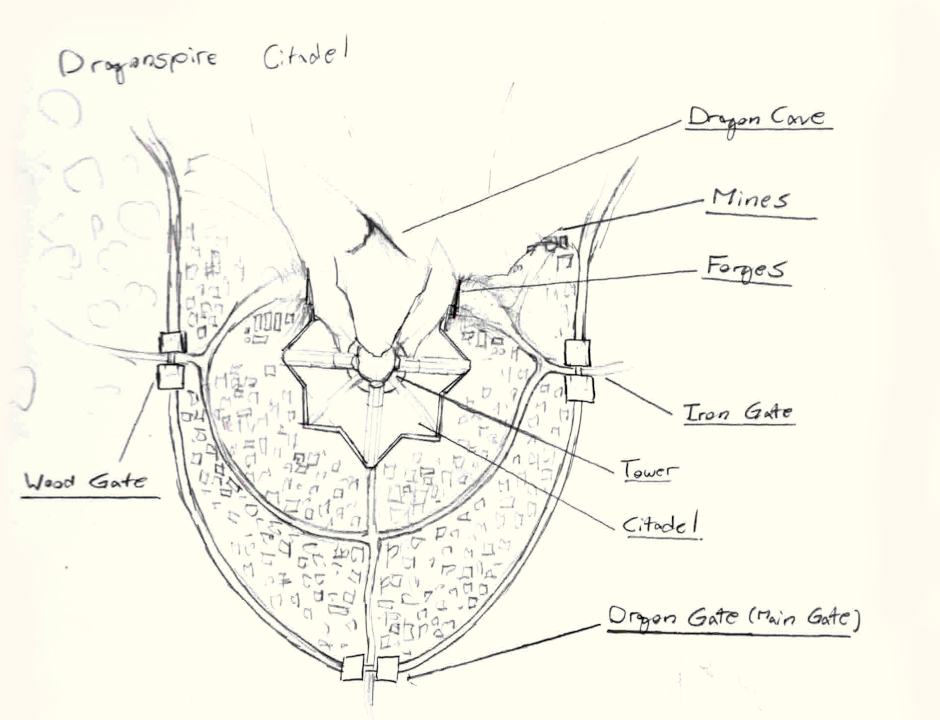 Dragonspire Citadel
Dragon Cave
Mines
Forges
Iron Gate
Tower
Wood Gate
Citadel
Dragon Gate (Main Gate)